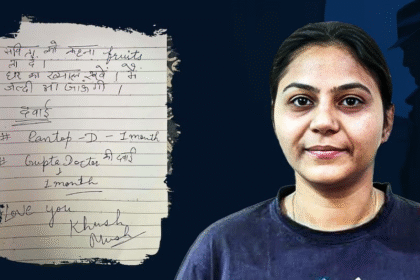 को कहना fruits
ला दे।
घर का ख्याल रखें। मैं
जल्दी आ जाऊंगी।
दवाई
# Pantop-D - 1 month
# Gupta Doctor की दवाई
1 month
Love you
Khush